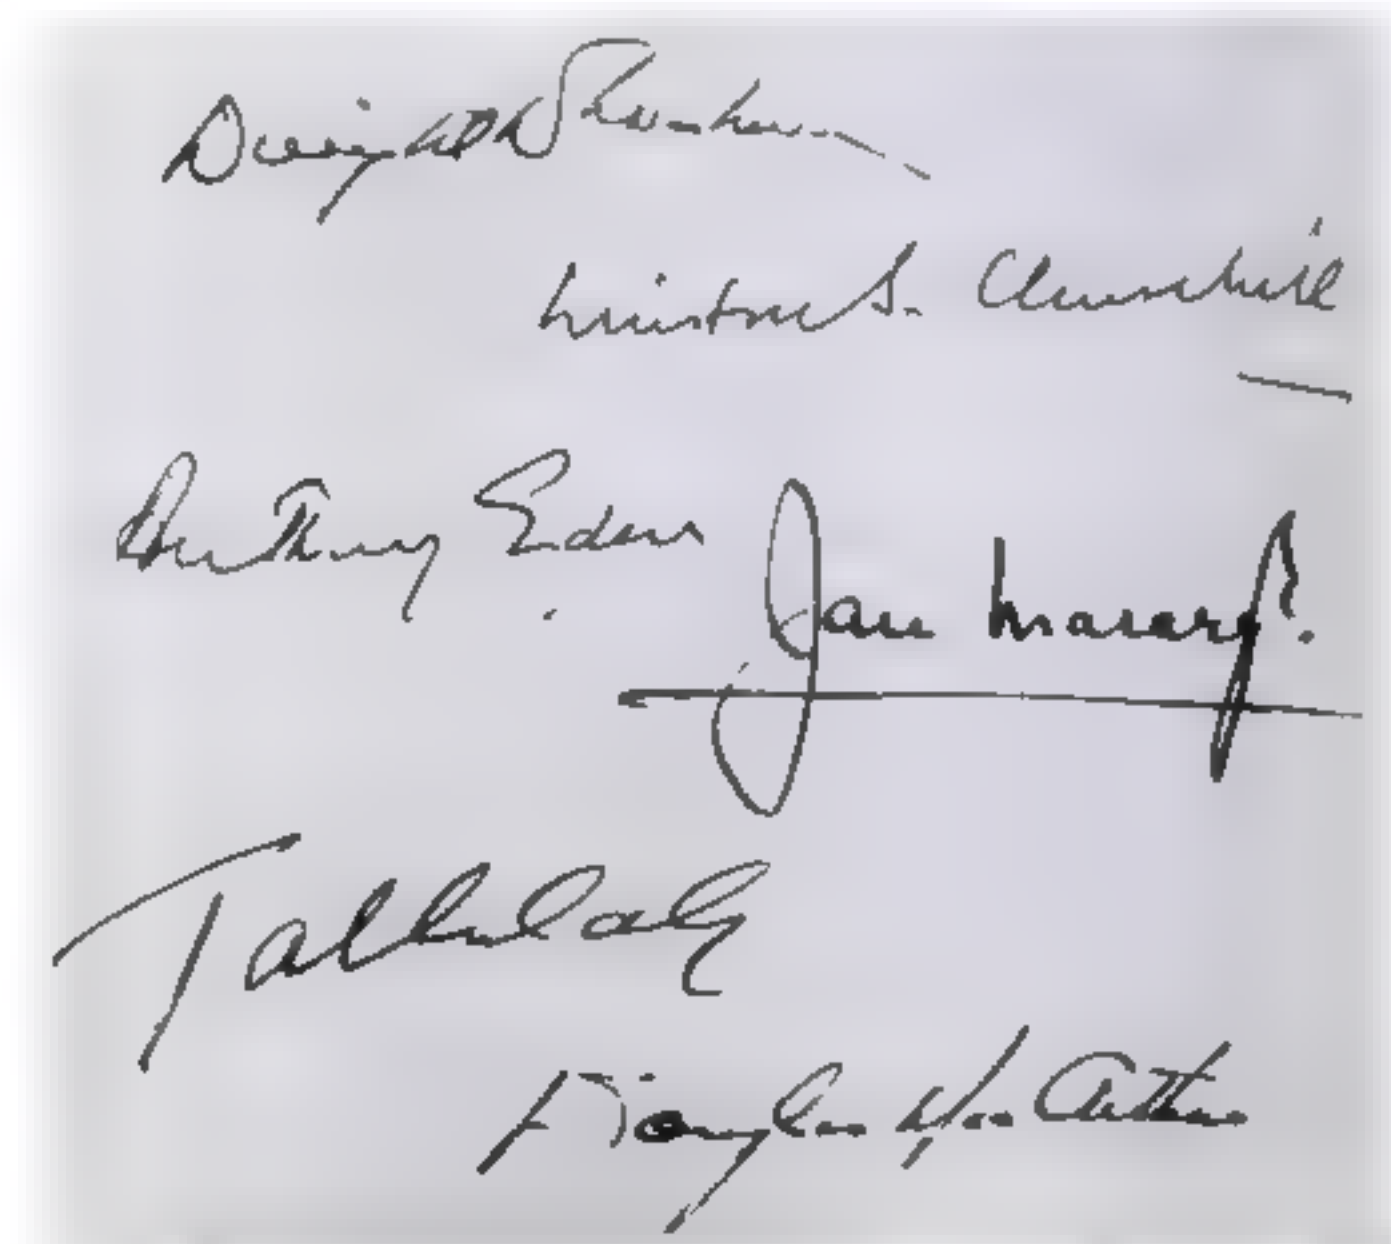 Dwight D Eisenhower
Winston S. Churchill
Anthony Eden
Jan Masaryk.
Tallulah
Douglas MacArthur